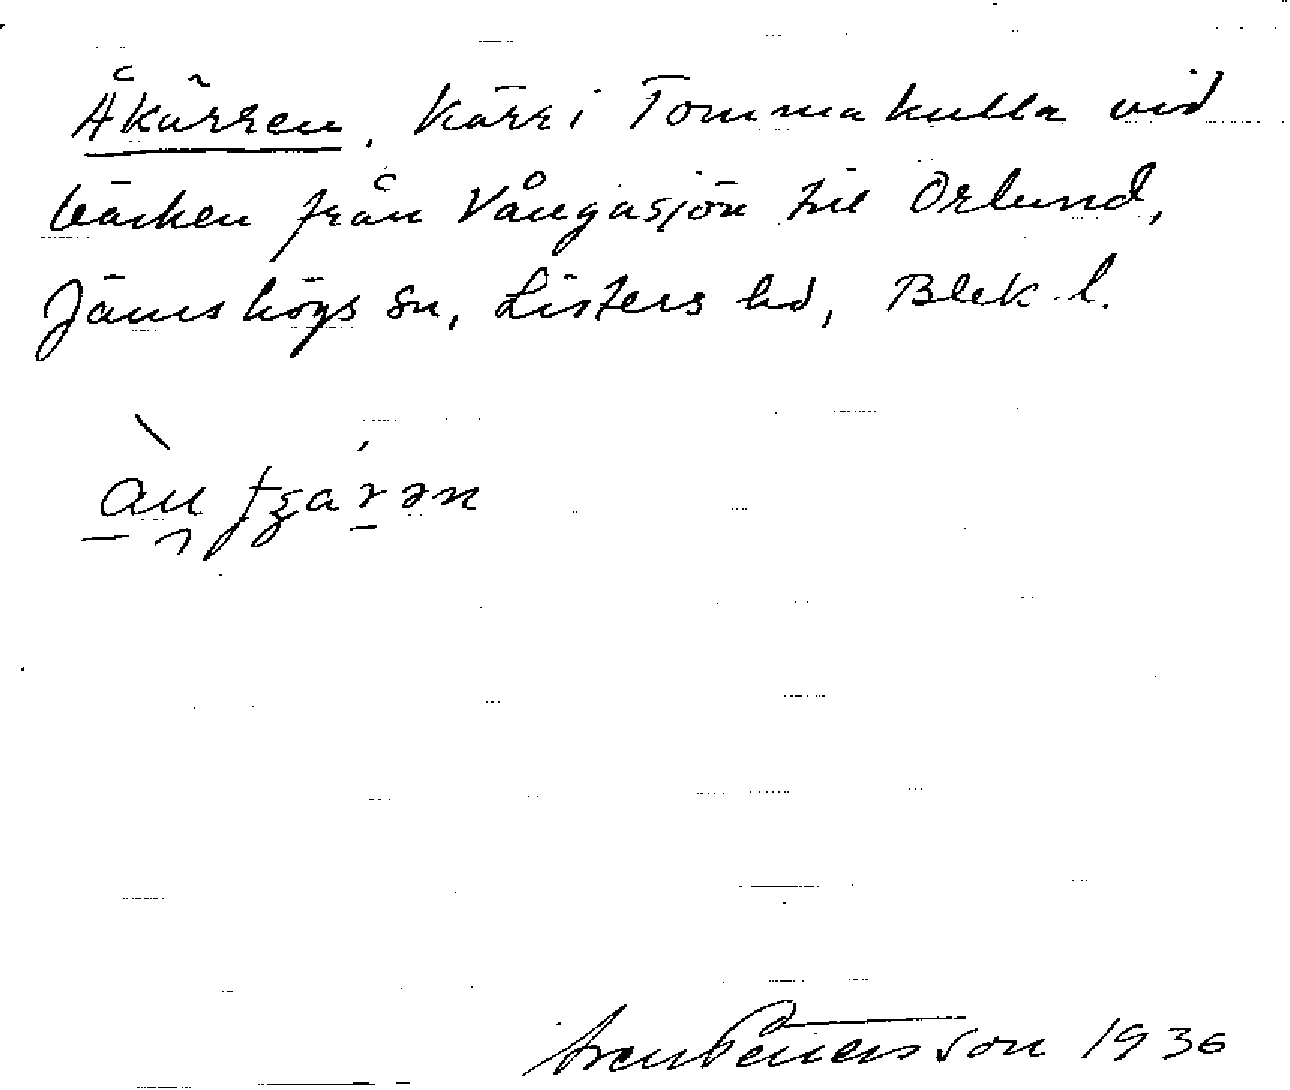 Åkärren. Kärr i Tommakulla vid
bäcken från Vångasjön till Örlund,
Jämshögs sn, Listers hd, Blek. l.
Petersson 1936